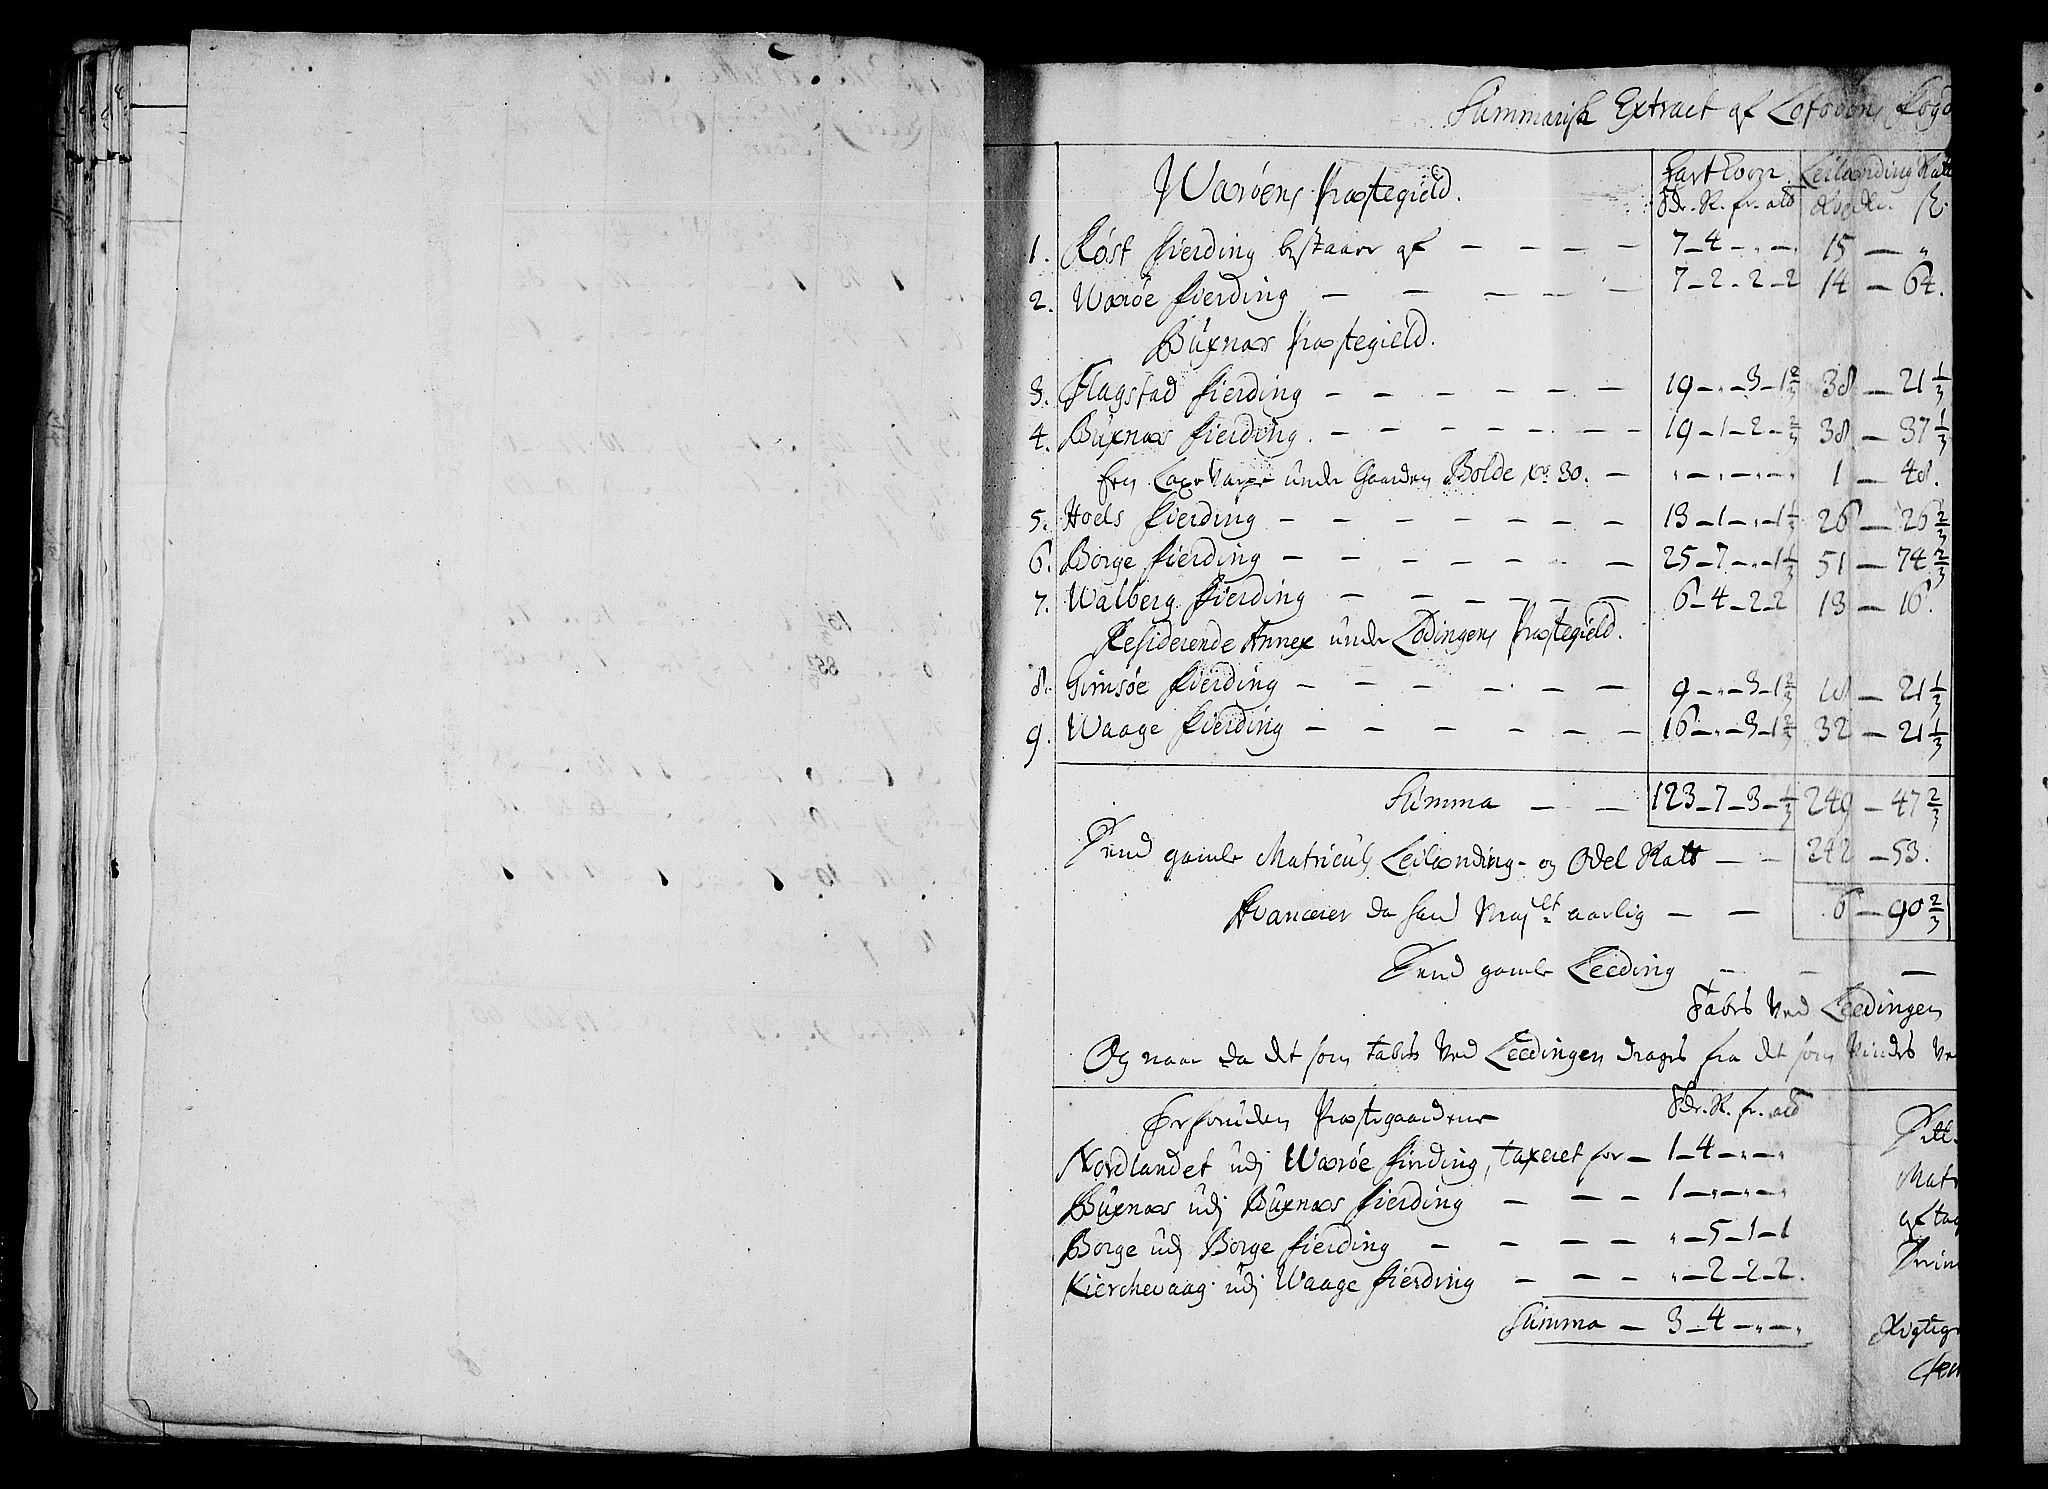 Summarisk Extract af Lofodens Fogd
Hart Korn Leilænding Skatt
Wærøens Præstegield.
Wdr. R.
1. Røst Fierding bestaaer af — — — — 7 - 4 - „ - „ 15 — „
2. Wærøe Fierding — — — — — 7 - 2 - 2 - 2 14 — 64.
Buxnæs Præstegield.
3. Flagstad Fierding — — — — — — 19 - „ - 3 - 1 2/3 38 — 21 1/3
4. Buxnæs Fierding. — — — — — — — 19 - 1 - 2 - 2/3 38 — 37 1/3
Een Laxe Varpe under Gaarden Bolde No 30. — „ - „ - „ - „ 1 — 48.
5. Hoels Fierding — — — — — — — — 13 - 1 - „ - 1 1/3 26 — 26 2/3
6. Borge Fierding — — — — — — — 25 - 7 - „ - 1 1/3 51 — 74 2/3
7. Walberg Fierding — — — — — — 6 - 4 - 2 - 2 13 — 16.
Residerende Annex under Lødingens Præstegield.
8. Gimsøe Fierding — — — — — — 9 - „ - 3 - 1 2/3 18 — 21 1/3
9. Waage Fierding — — — — — — 16 - „ - 3 - 1 2/3 32 — 21 1/3
Summa — — 123 - 7 - 3 - 1/3 249 — 47 2/3
Tend gamle Matriculs Leilænding- og Odel Skatt — — 242 — 53.
Avancerer da hans Majtt aarlig — — 6 — 90 2/3
Tend gamle Leeding — — —
Tabes ved Leedingen
Og naar da det som tabes ved Leedingen drages fra det som vindes ve
Forforuden Præstegaardene
Nordlandet udj Wærøe Fierding, taxeret for — 1 - 4 - „ - „
Buxnæs udj Buxnæs Fierding — — — 1 - „ - „ - „
Borge udj Borge Fierding — — — — „ - 5 - 1 - 1
Kierchevaag udj Waage Fierding — — — „ - 2 - 2 - 2.
Summa — 3 - 4 - „ - „
Matr
aftag
Rigtig